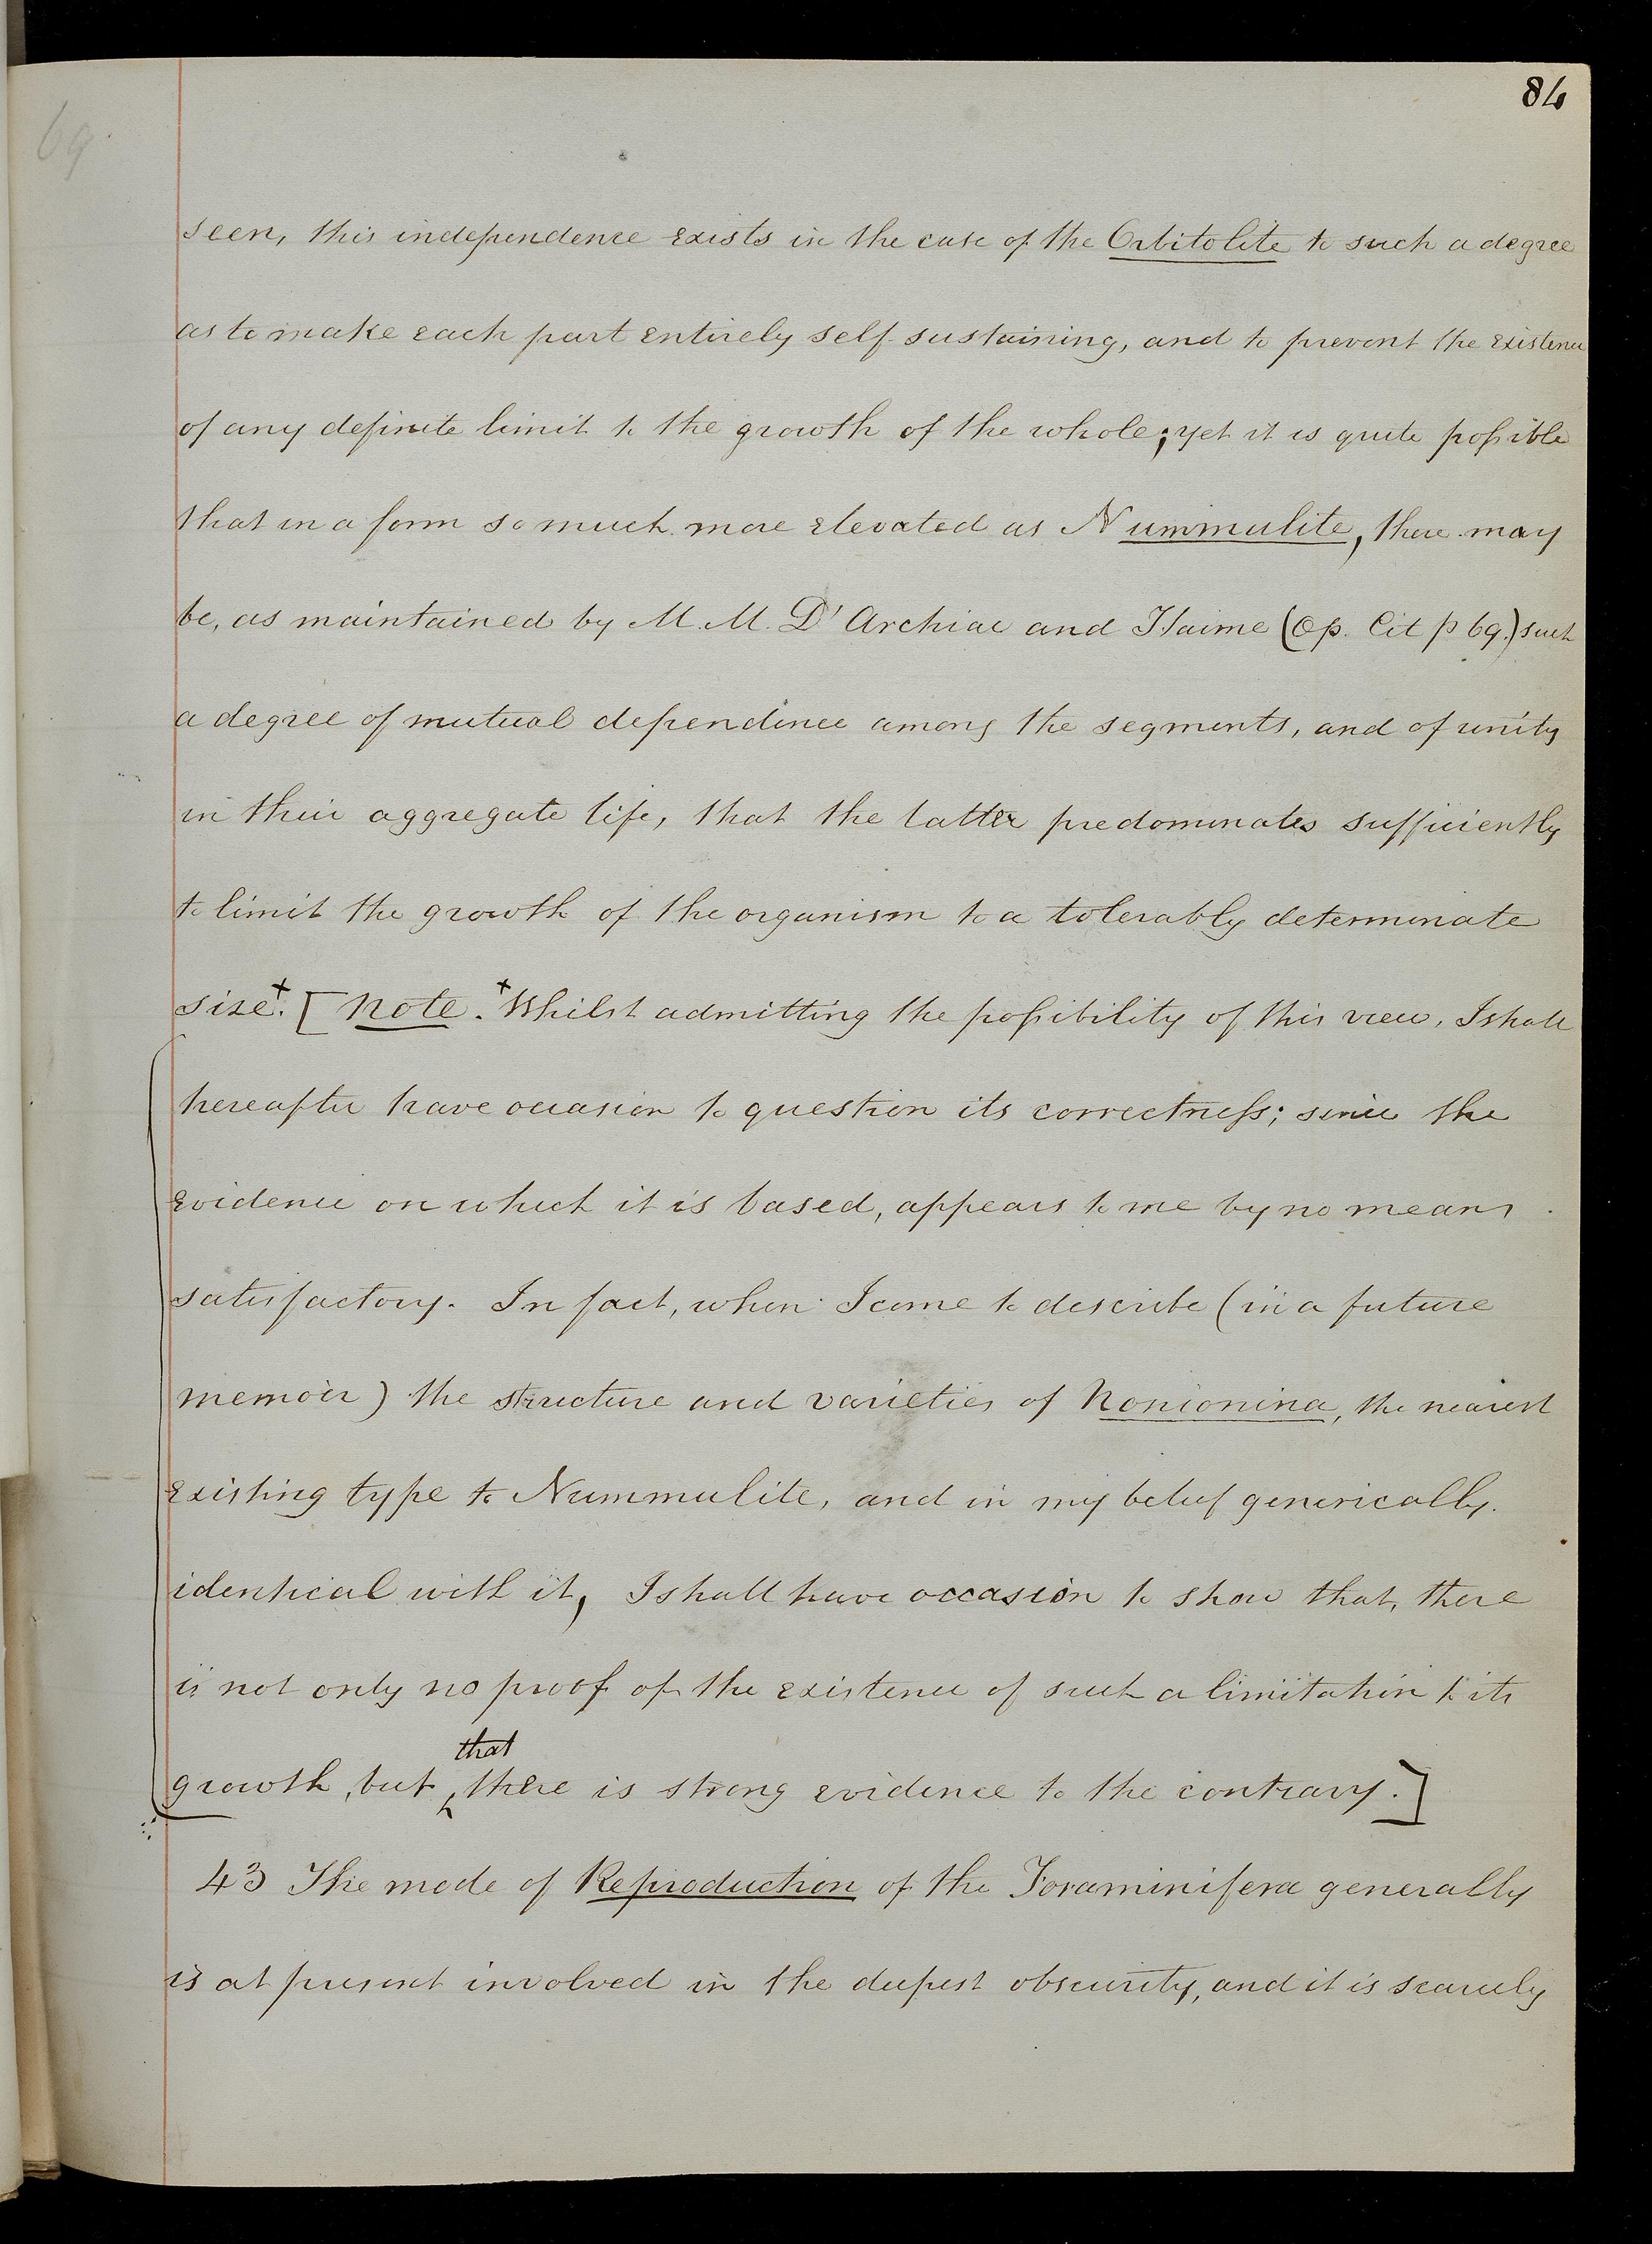 84
69.
seen, this independence exists in the case of the Orbitolite to such a degree
as to make each part entirely self-sustaining, and to prevent the existence
of any definite limit to the growth of the whole; yet it is quite possible
that in a form so much more elevated as Nummulite, there may
be, as maintained by M.M. D'Archiac and Haime (Op. Cit p 69.) such
a degree of mutual dependence among the segments, and of unity
in their aggregate life, that the latter predominates sufficiently
to limit the growth of the organism to a tolerably determinate
size.+ [Note. +Whilst admitting the possibility of this view, I shall
hereafter have occasion to question its correctness; since the
evidence on which it is based, appears to me by no means
satisfactory. In fact, when I come to describe (in a future
memoir) the structure and varieties of Nonionina, the nearest
existing type to Nummulite, and in my belief generically
identical with it, I shall have occasion to show that, there
is not only no proof of the existence of such a limitation to its
that
growth, but there is strong evidence to the contrary.]
43 The mode of Reproduction of the Foraminifera generally
is at present involved in the deepest obscurity, and it is scarcely